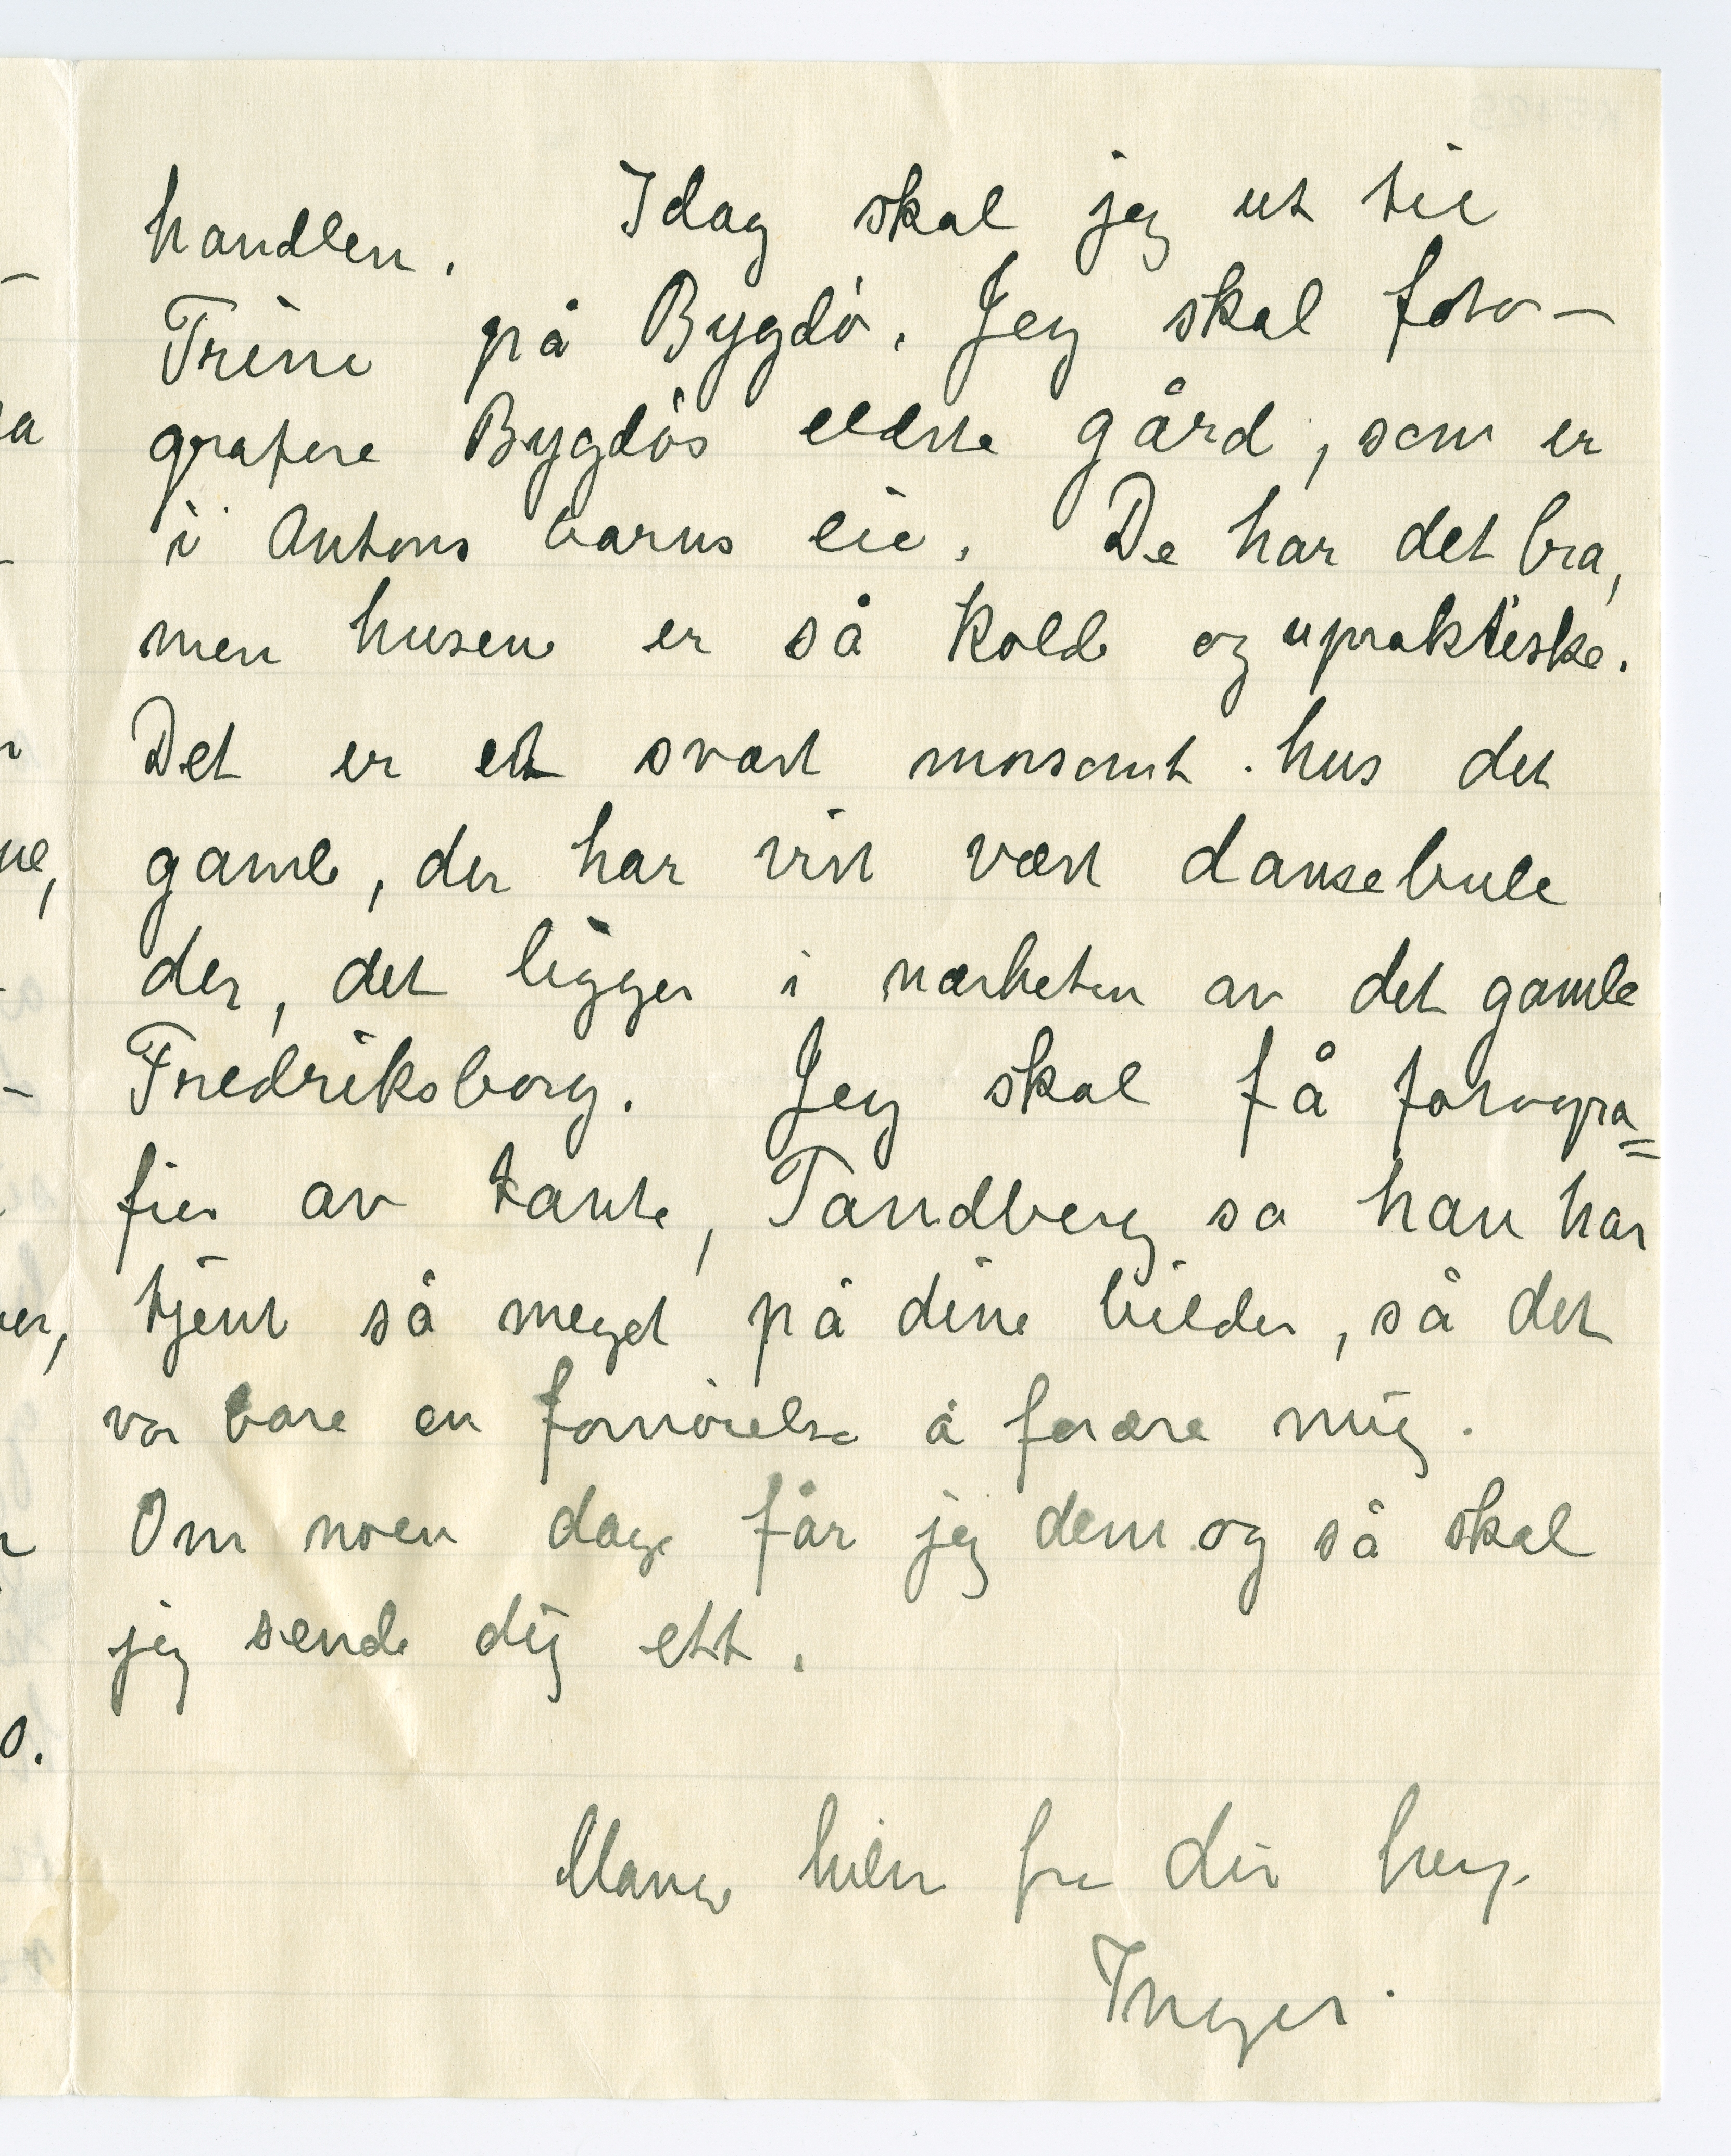 handlen. Idag skal jeg ut til
Trine på Bygdö. Jeg skal foto-
grafere Bygdös eldste gård, som er
i Antons barns eie. De har det bra,
men husene er så kolde og upraktiske.
Det er et svært morsomt hus det
gamle, der har visst vært dansebule
der, det ligger i nærheten av det gamle
Fredriksborg. Jeg skal få fotogra=
fier av tante, Tandberg sa han har
tjent så meget på dine bilder, så det
var bare en fornöielse å forære mig.
Om noen dage får jeg dem og så skal
jeg sende dig ett.
Mange hilsn fra din heng.
Inger.